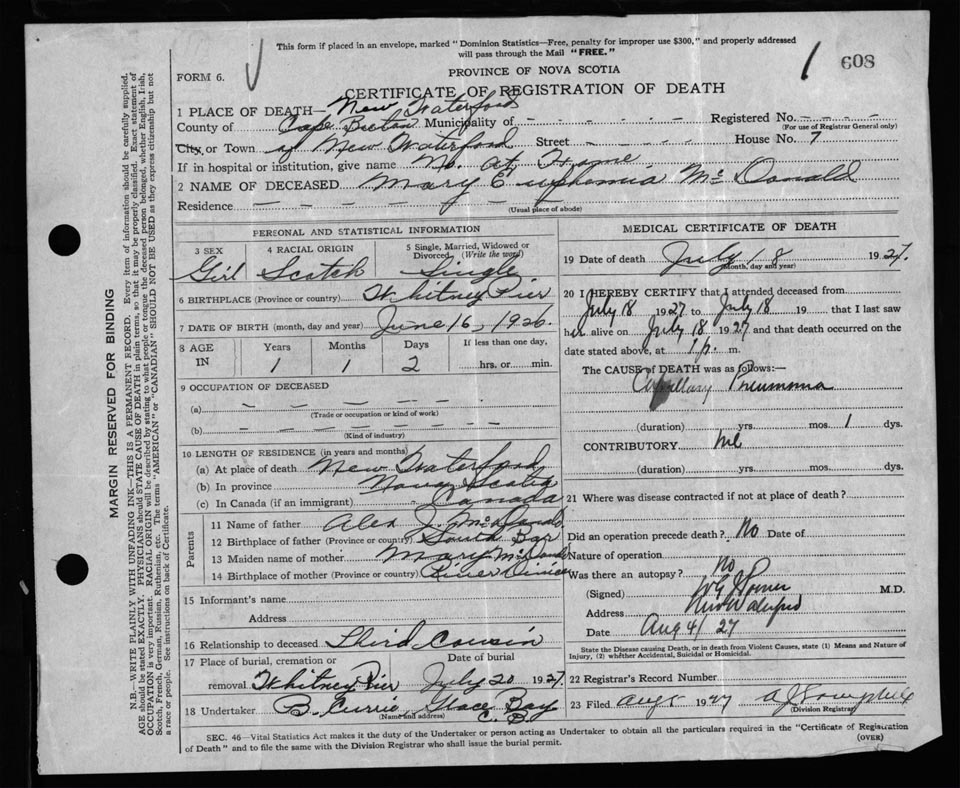 This form if placed in an envelope, marked "Dominion Statistics—Free, penalty for improper use $300," and properly addressed
will pass through the Mail "FREE."
1 608
FORM 6.
PROVINCE OF NOVA SCOTIA
CERTIFICATE OF REGISTRATION OF DEATH
1 PLACE OF DEATH— New Waterford
County of Cape Breton Municipality of - - - - - - Registered No. - - - -
(For use of Registrar General only)
City or Town of New Waterford Street - - - - - House No. 7
If in hospital or institution, give name No. at Home
2 NAME OF DECEASED Mary Euphemia Mc Donald
Residence — — — — — — — — — —
(Usual place of abode)
PERSONAL AND STATISTICAL INFORMATION
3 SEX 4 RACIAL ORIGIN 5 Single, Married, Widowed or Divorced (Write the word)
Girl Scotch Single
6 BIRTHPLACE (Province or country) Whitney Pier
7 DATE OF BIRTH (month, day and year) June 16, 1926.
8 AGE IN Years Months Days If less than one day,
1 1 2 hrs. or min.
9 OCCUPATION OF DECEASED
(a) — — — — — —
(Trade or occupation or kind of work)
(b) — — — — — —
(Kind of industry)
10 LENGTH OF RESIDENCE (in years and months)
(a) At place of death New Waterford
(b) In province Nova Scotia
(c) In Canada (if an immigrant) Canada
Parents
11 Name of father Alex J. McDonald
12 Birthplace of father (Province or country) South Bar
13 Maiden name of mother Mary McDonald
14 Birthplace of mother (Province or country) River
15 Informant's name
Address
16 Relationship to deceased Third Cousin
17 Place of burial, cremation or removal Date of burial
Whitney Pier July 20 1927.
18 Undertaker B. Currie, Glace Bay
(Name and address) C. B.
MEDICAL CERTIFICATE OF DEATH
19 Date of death July 18 1927.
(Month, day and year)
20 I HEREBY CERTIFY that I attended deceased from
July 18 1927 to July 18 19 that I last saw
her alive on July 18 1927 and that death occurred on
date stated above, at 1 p. m.
The CAUSE of DEATH was as follows:—
Capillary Pneumonia
(duration) yrs. mos. 1 dys.
CONTRIBUTORY Nil
(duration) yrs. mos. dys.
21 Where was disease contracted if not at place of death?
Did an operation precede death? No Date of
Nature of operation
Was there an autopsy? No
(Signed) M.D.
Address New Waterford
Date Aug 4/ 27
State the Disease causing Death, or in death from Violent Causes, state (1) Means and Nature of
Injury, (2) whether Accidental, Suicidal or Homicidal.
22 Registrar's Record Number
23 Filed Aug 5 1927
(Division Registrar)
SEC. 46—Vital Statistics Act makes it the duty of the Undertaker or person acting as Undertaker to obtain all the particulars required in the "Certificate of Registration
of Death" and to file the same with the Division Registrar who shall issue the burial permit.
(OVER)
MARGIN RESERVED FOR BINDING
N.B.—WRITE PLAINLY WITH UNFADING INK—THIS IS A PERMANENT RECORD. Every item of information should be carefully supplied.
AGE should be stated EXACTLY. PHYSICIANS should STATE CAUSE OF DEATH in plain terms, so that it may be properly classified. Exact statement of
OCCUPATION is very important. RACIAL ORIGIN will be described by stating to what people or tongue the deceased person belonged, whether English, Irish,
Scotch, French, German, Russian, Ruthenian, etc. The terms "AMERICAN" or "CANADIAN" SHOULD NOT BE USED as they express citizenship but not
a race or people. See instructions on back of Certificate.